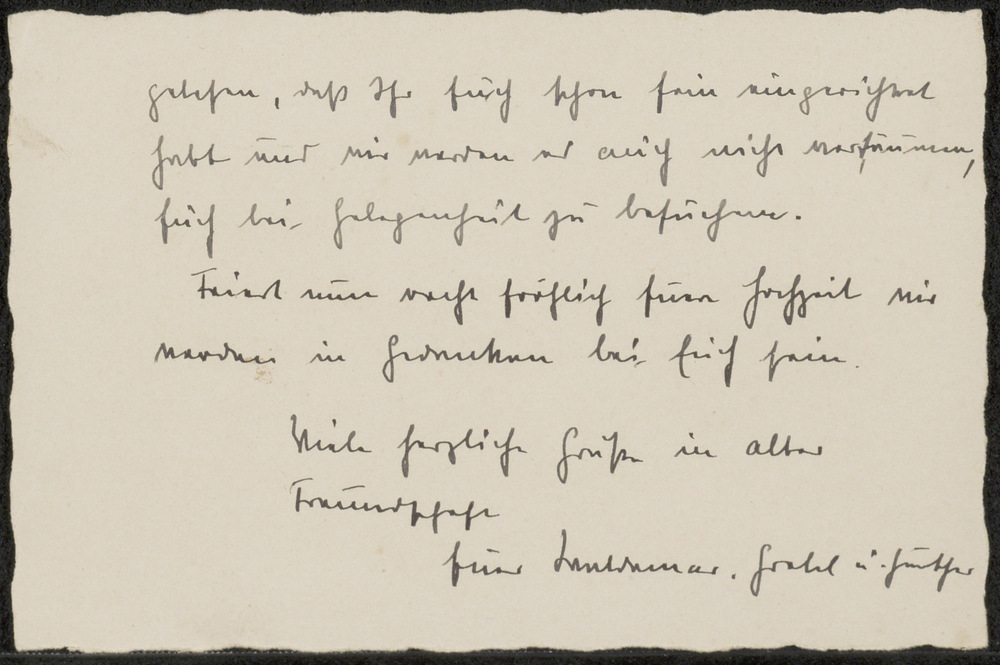 gelesen, daß Ihr Euch schon fein eingerichtet
habt und wir werden es auch nicht versäumen,
Euch bei Gelegenheit zu besuchen.
Feiert nun recht fröhlich Eure Hochzeit wir
werden in Gedanken bei Euch sein.
Viele herzliche Grüße in alter
Freundschaft
Euer Waldemar, Gretel u.